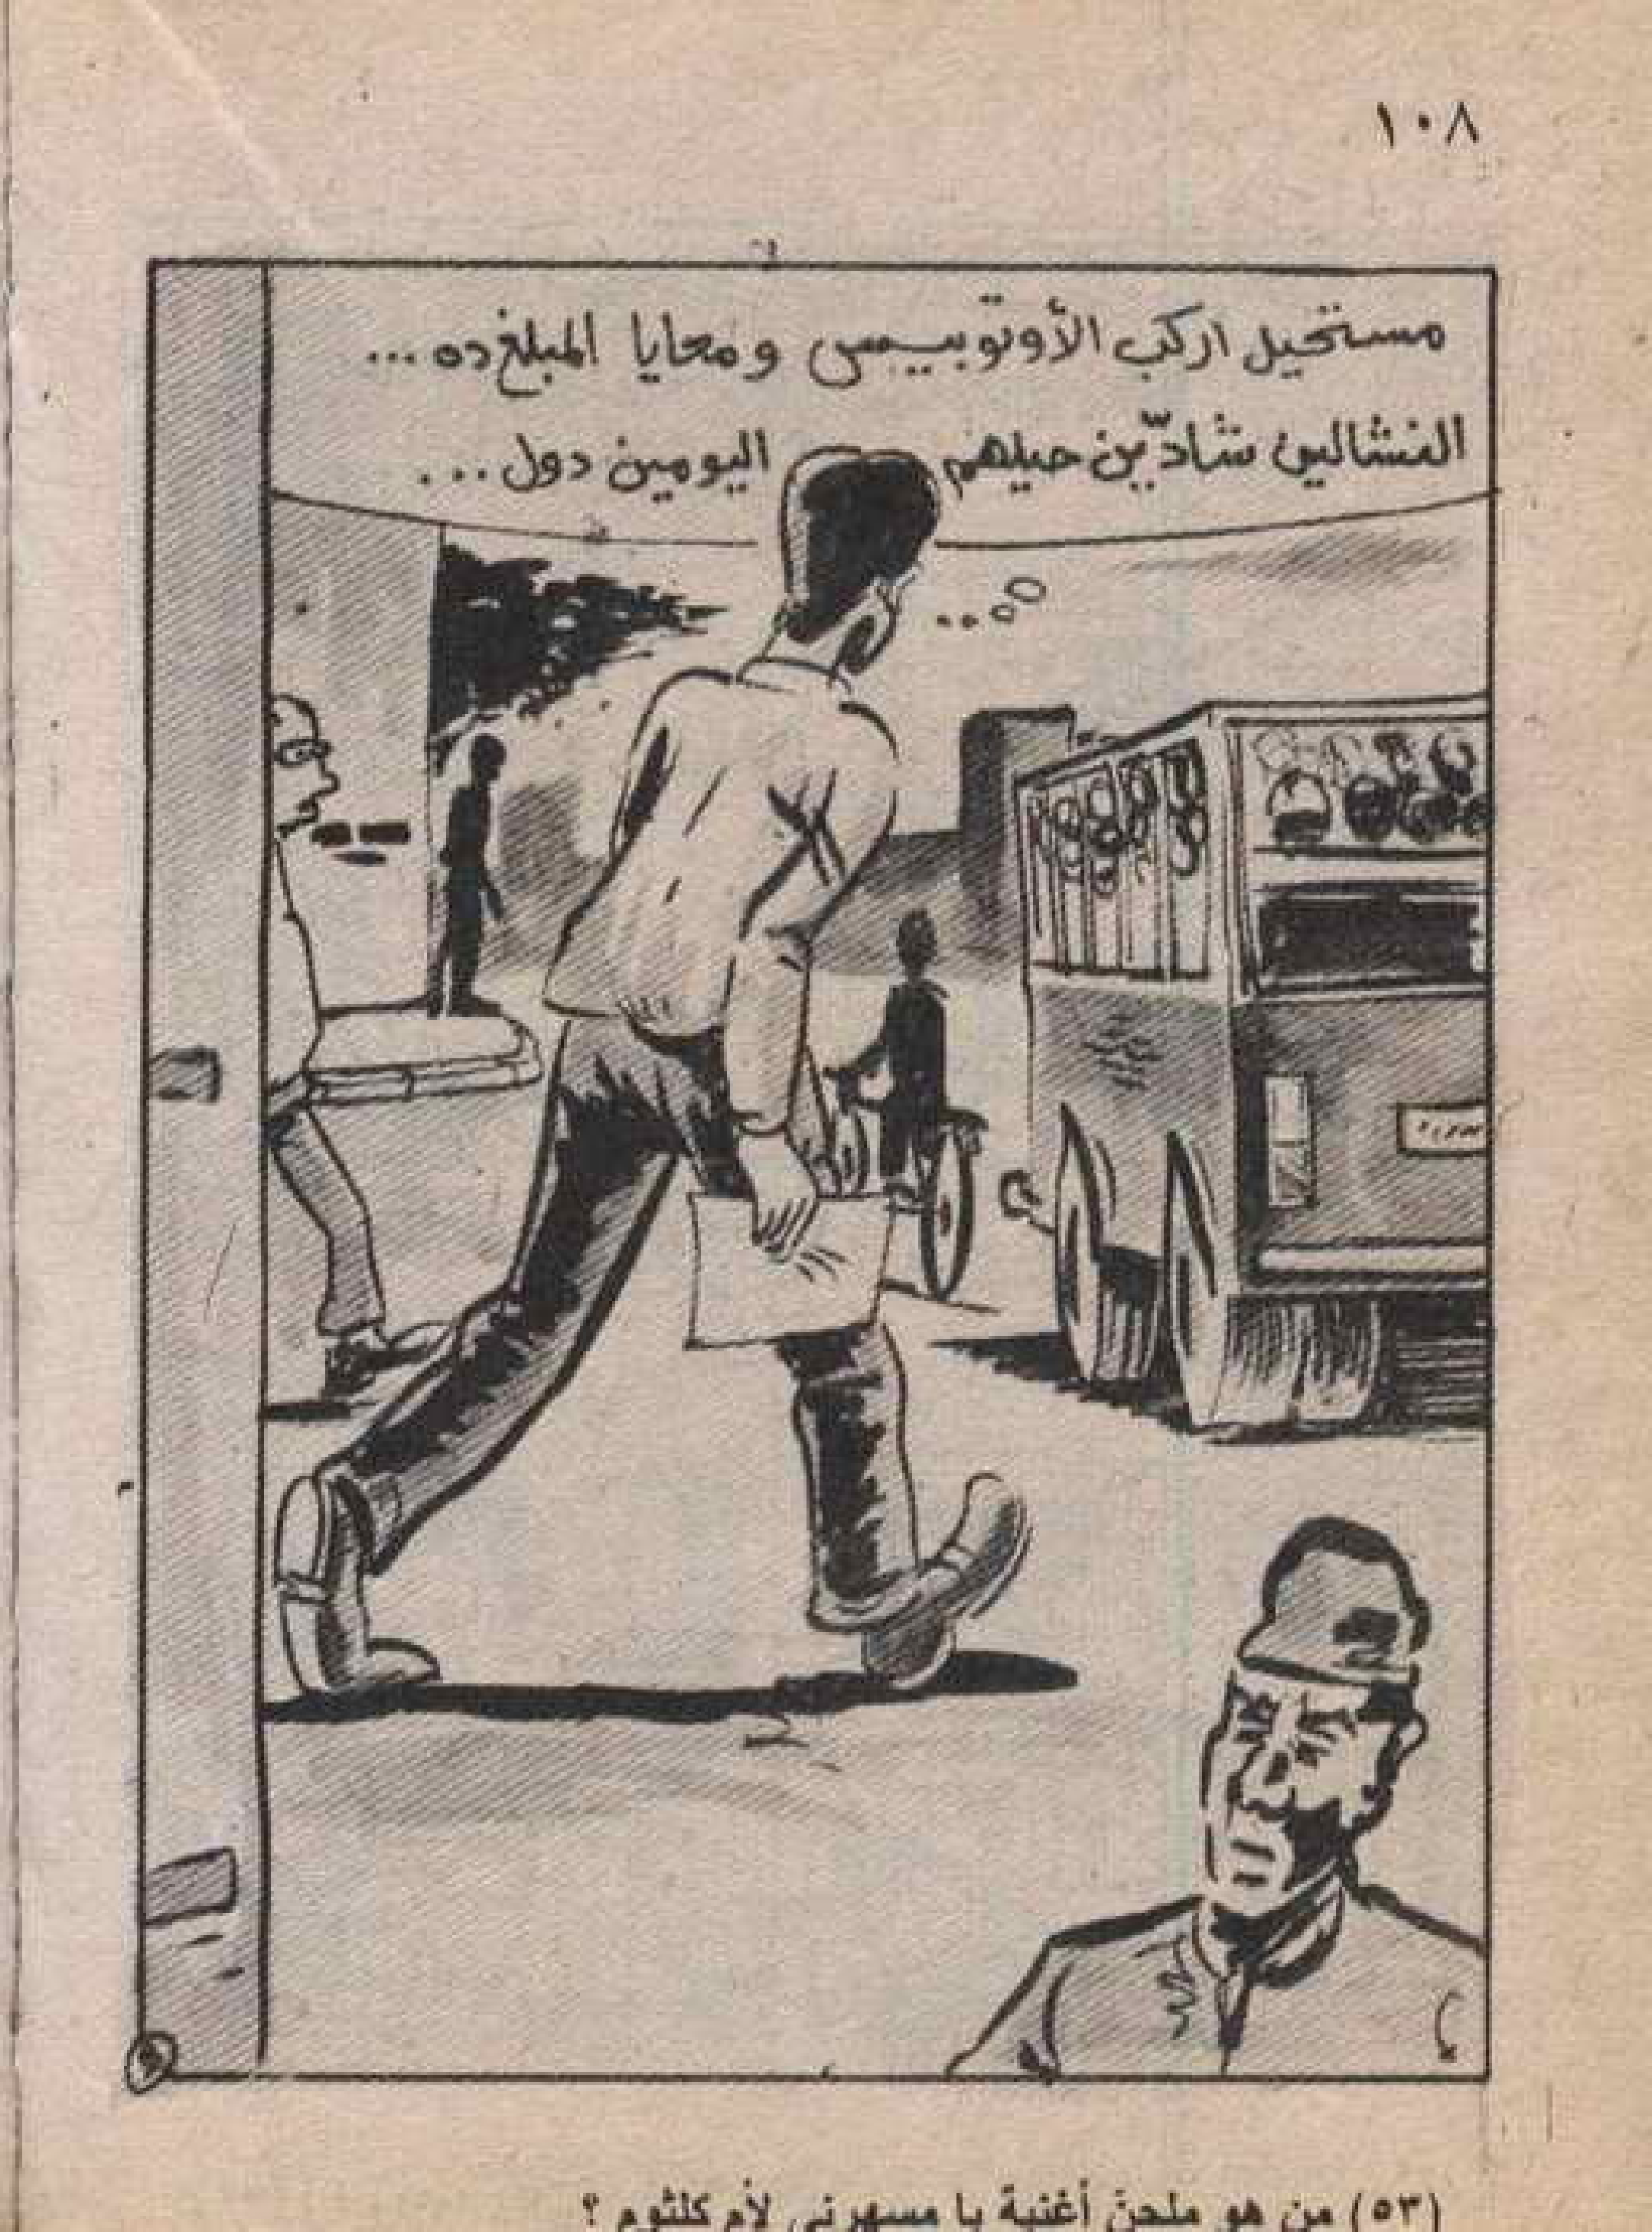 ١٠٨
مستحيل اركب الأوتوبيس ومعايا المبلغ ده ...
النشالين شادّين حيلهم اليومين دول ...
(٥٣) من هو ملحن أغنية يا مسهرني لأم كلثوم ؟